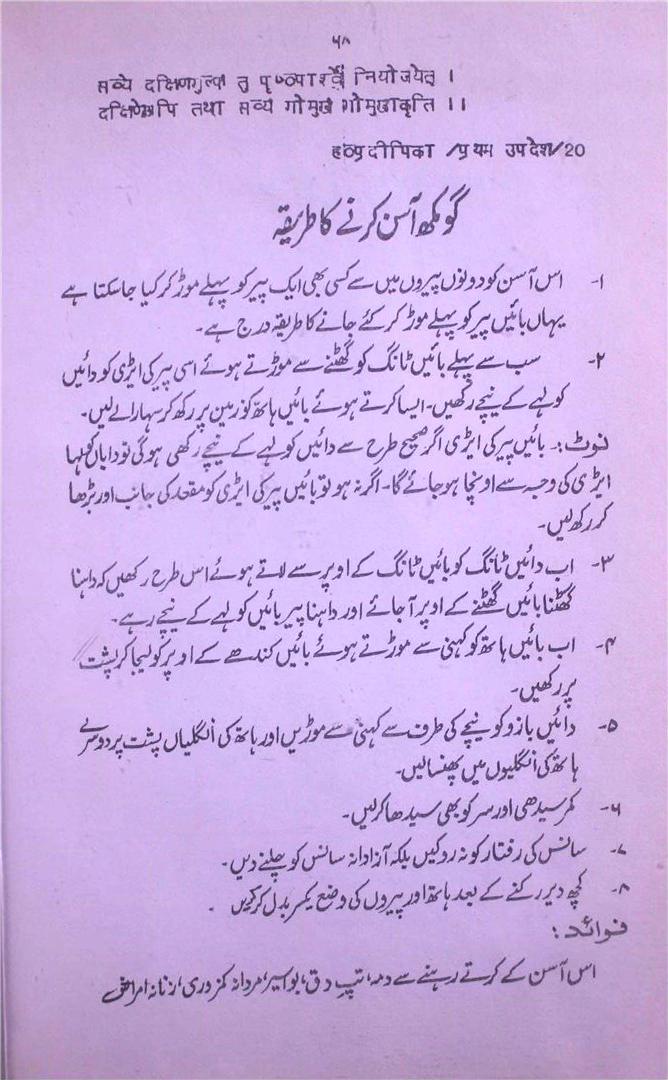 ۵۸
सव्ये दक्षिणगुल्फं तु पृष्ठपार्श्वे नियोजयेत् ।
दक्षिणेऽपि तथा सव्यं गोमुखं गोमुखाकृति ।।
हठप्रदीपिका /प्रथम उपदेश/20
گومکھ آسن کرنے کا طریقہ
۱- اس آسن کو دونوں پیروں میں سے کسی بھی ایک پیر کو پہلے موڑ کر کیا جاسکتا ہے
یہاں بائیں پیر کو پہلے موڑ کر کئے جانے کا طریقہ درج ہے۔
۲- سب سے پہلے بائیں ٹانگ کو گھٹنے سے موڑتے ہوئے اسی پیر کی ایڑی کو دائیں
کولہے کے نیچے رکھیں۔ ایسا کرتے ہوئے بائیں ہاتھ کو زمین پر رکھ کر سہارا لے لیں۔
نوٹ:۔ بائیں پیر کی ایڑی اگر صحیح طرح سے دائیں کولہے کے نیچے رکھی ہوگی تو دایاں کولہا
ایڑی کی وجہ سے اونچا ہو جائے گا۔ اگر نہ ہو تو بائیں پیر کی ایڑی کو مقعد کی جانب اور بڑھا
کر رکھ لیں۔
۳- اب دائیں ٹانگ کو بائیں ٹانگ کے اوپر سے لاتے ہوئے اس طرح رکھیں کہ داہنا
گھٹنا بائیں گھٹنے کے اوپر آ جائے اور داہنا پیر بائیں کولہے کے نیچے رہے۔
۴- اب بائیں ہاتھ کو کہنی سے موڑتے ہوئے بائیں کندھے کے اوپر کو لیجا کر پشت
پر رکھیں۔
۵- دائیں بازو کو نیچے کی طرف سے کہنی سے موڑیں اور ہاتھ کی انگلیاں پشت پر دوسرے
ہاتھ کی انگلیوں میں پھنسائیں۔
۶- کمر سیدھی اور سر کو بھی سیدھا کرلیں۔
۷- سانس کی رفتار کو نہ روکیں بلکہ آزادانہ سانس کو چلنے دیں۔
۸- کچھ دیر رکنے کے بعد ہاتھ اور پیروں کی وضع یکسر بدل کر کریں ۔
فوائد:
اس آسن کے کرتے رہنے سے دمہ، تپِ دق، بواسیر، مردانہ کمزوری، زنانہ امراض